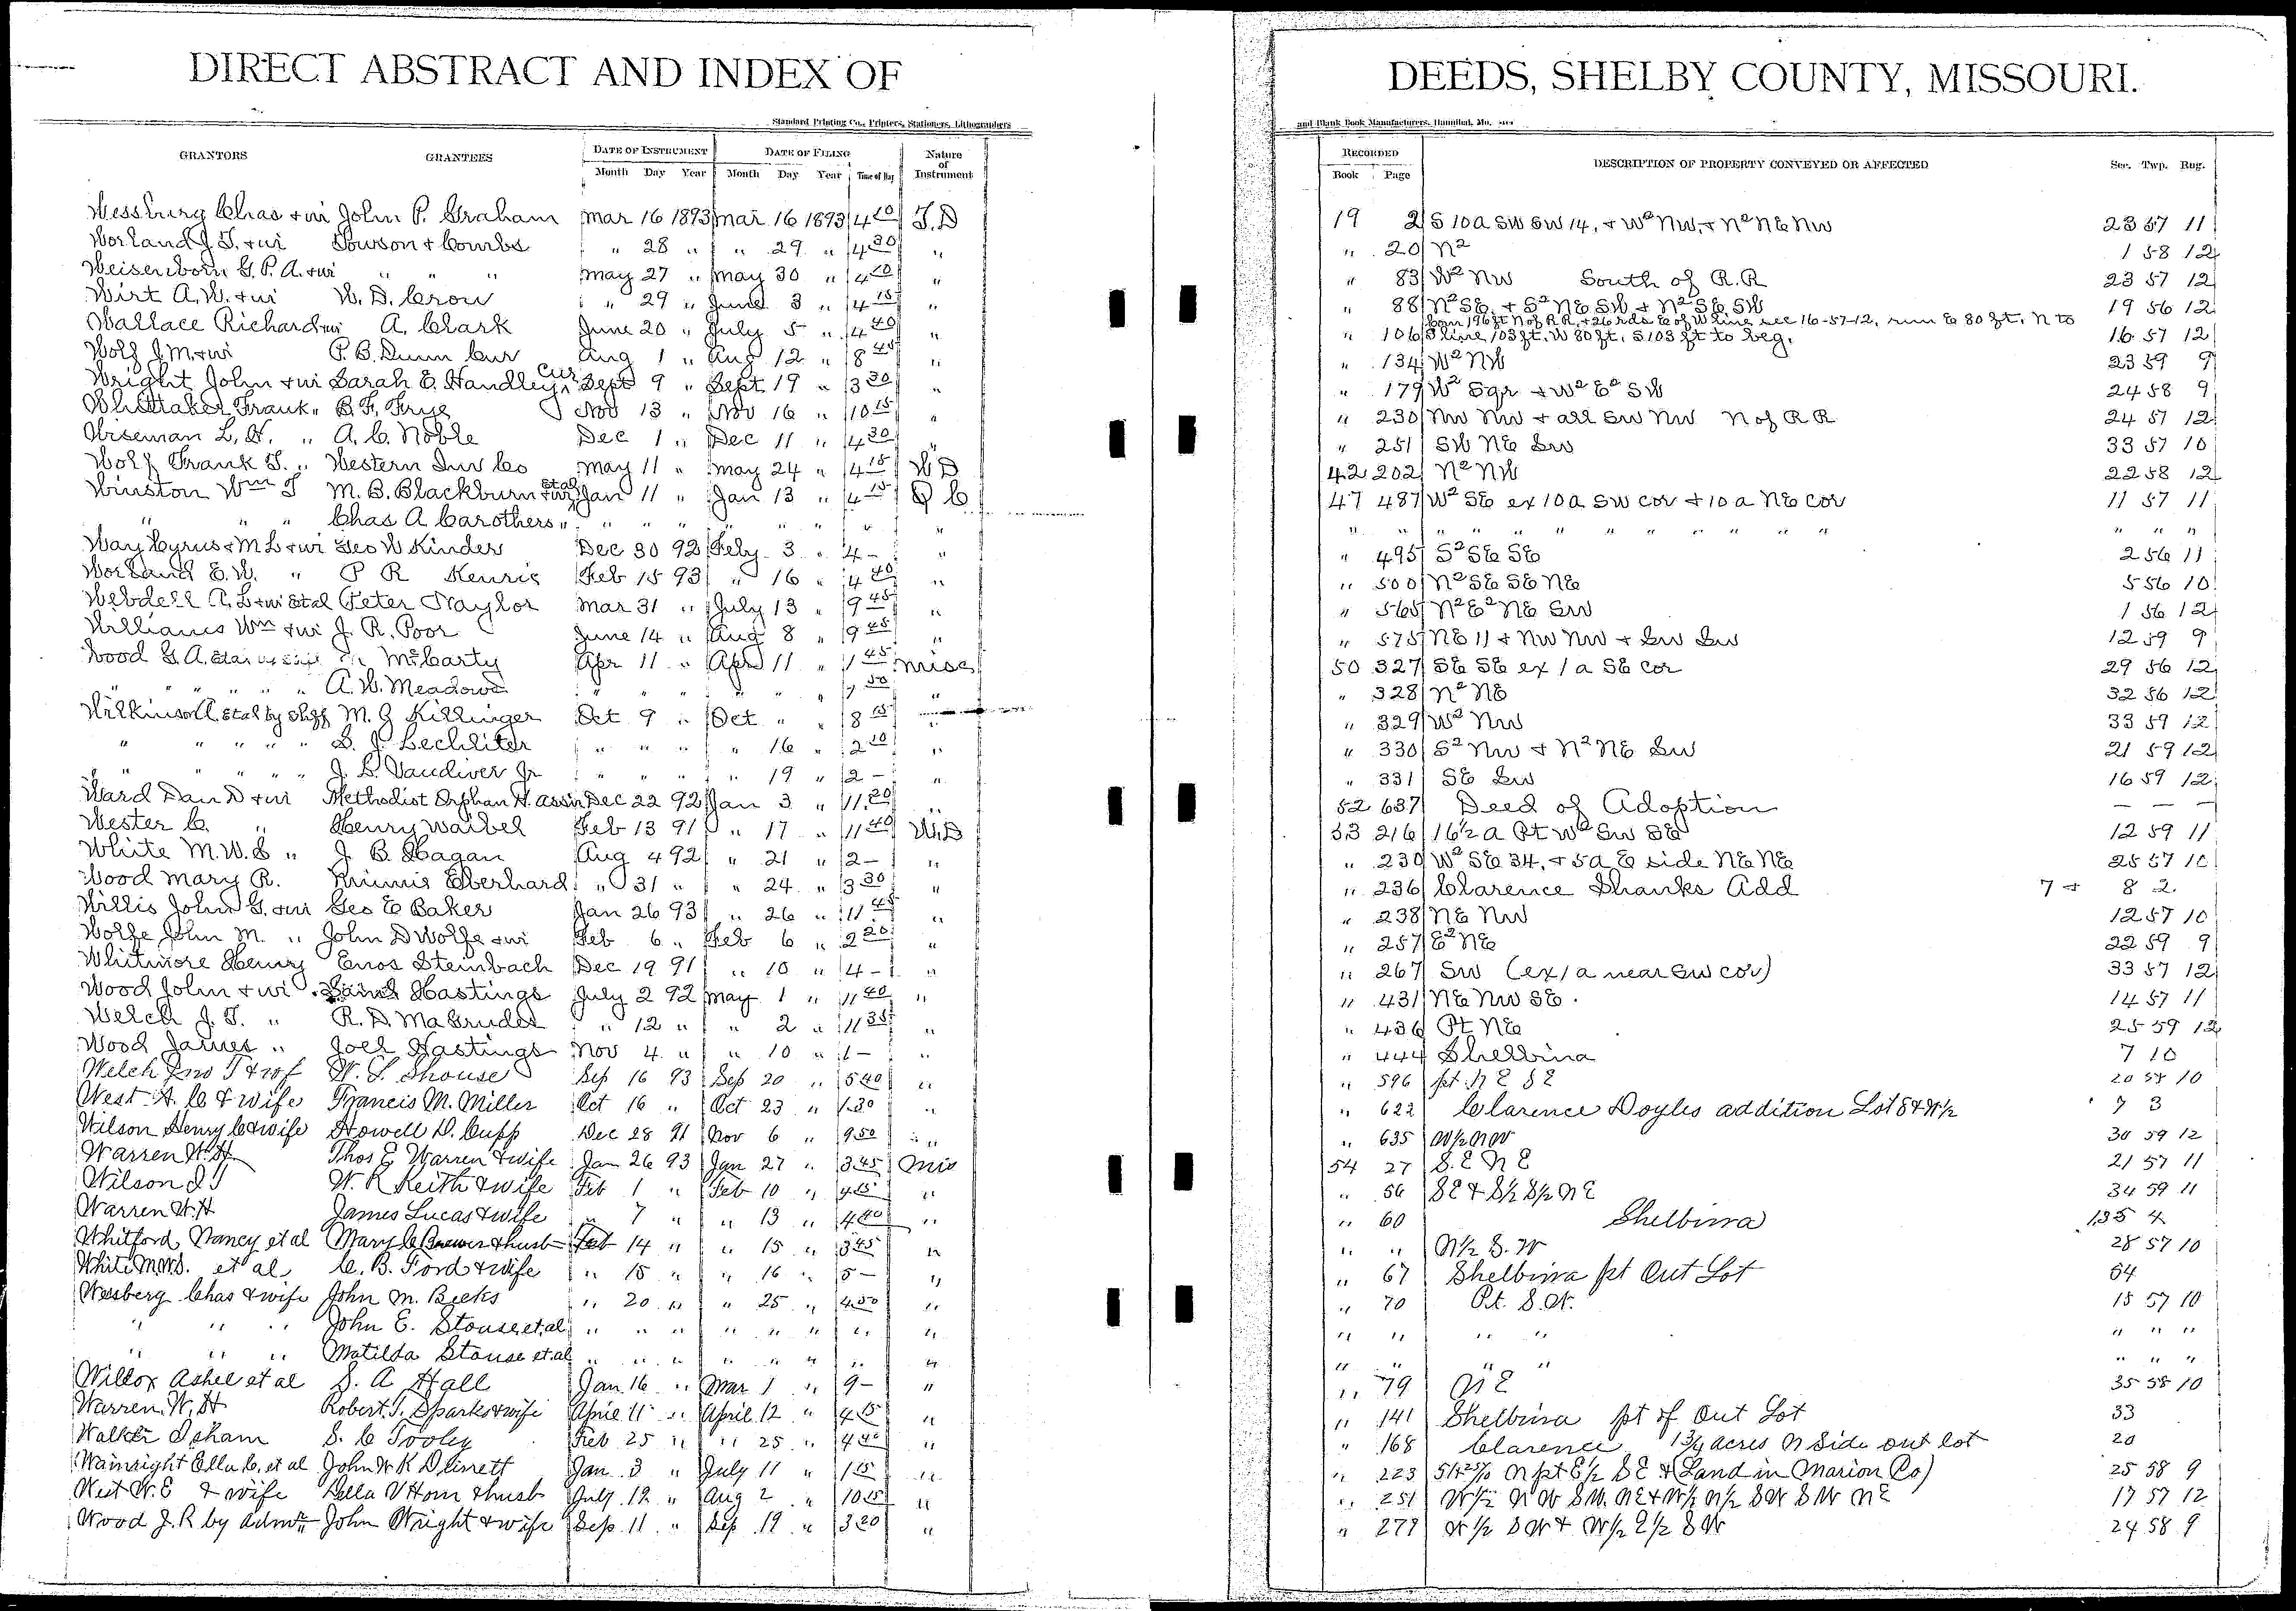 DIRECT ABSTRACT AND INDEX OF DEEDS, SHELBY COUNTY, MISSOURI.
Standard Printing Co., Printers, Stationers, Lithographers and Blank Book Manufacturers, Hannibal, Mo.
GRANTORS GRANTEES DATE OF INSTRUMENT DATE OF FILING Nature of Instrument RECORDED DESCRIPTION OF PROPERTY CONVEYED OR AFFECTED Sec. Twp. Rng.
Month Day Year Month Day Year Time of Day Book Page
Wessburg Chas + wi John P. Graham Mar 16 1893 Mar 16 1893 4 20 T.D 19 2 S 10a SW SW 14, + W2 NW, + N2 NE NW 23 57 11
Worland J. T. + wi Towson + Combs " 28 " " 29 " 4 30 " " 20 N2 1 58 12
Weisenborn G. P. A. + wi " " " May 27 " May 30 " 4 20 " " 83 W2 NW South of R.R 23 57 12
Wirt A. W. + wi W. D. Crow " 29 " June 3 " 4 15 " " 88 N2 SE, + S2 NE SW + N2 SE SW 19 56 12
Wallace Richard + wi A. Clark June 20 " July 5 " 4 40 " " 106 Com 196 ft N of R R, + 26 rds E of W line sec 16-57-12, run E 80 ft. N to
S line 103 ft. W 80 ft. S 103 ft to beg. 16 57 12
Wolf J M. + wi P. B. Dunn Cur Aug 1 " Aug 12 " 8 45 " " 134 W2 NW 23 59 9
Wright John + wi Sarah E. Handley, Cur Sept 9 " Sept 19 " 3 20 " " 179 W2 Sqr + W2 E2 SW 24 58 9
Whittaker Frank " B. F. Frye Nov 13 " Nov 16 " 10 15 " " 230 NW NW + all SW NW N of R R 24 57 12
Wiseman L. H. " A. C. Noble Dec 1 " Dec 11 " 4 30 " " 251 SW NE SW 33 57 10
Wolf Frank T. " Western Inv Co May 11 " May 24 " 4 15 W D 42 202 N2 NW 22 58 12
Winston Wm T M. B. Blackburn + wi et al Jan 11 " Jan 13 " 4 15 Q C 47 487 W2 SE ex 10a SW cor + 10 a NE cor 11 57 11
" " " Chas A Carothers " " " " " " " " " " " " " " " " " " " " " " " "
Way Cyrus + M L + wi Geo W Kinder Dec 30 92 Feby 3 " 4 - " " 495 S2 SE SE 2 56 11
Worland E. W. " P R Kenrie Feb 15 93 " 16 " 4 40 " " 500 N2 SE SE NE 5 56 10
Webdell A. L + wi et al Peter Traylor Mar 31 " July 13 " 9 45 " " 565 N2 E2 NE SW 1 56 12
Williams Wm + wi J. R. Poor June 14 " Aug 8 " 9 45 " " 575 NE 11 + NW NW + SW SW 12 59 9
Wood G. A. McCarty Apr 11 " Apr 11 " 1 45 Misc 50 327 SE SE ex 1 a SE cor 29 56 12
" " " " " A. W. Meadows " " " " " " " " 328 N2 NE 32 56 12
Wilkinson et al by Shff M. J Killinger Oct 9 " Oct " " 8 15 " 329 W2 NW 33 59 12
" " " " " S. J. Lechliter " " " " 16 " 2 10 " " 330 S2 NW + N2 NE SW 21 59 12
" " " " " J. L. Vandiver Jr " " " " 19 " 2 - " " 331 SE SW 16 59 12
Ward Dan D + wi Methodist Orphan H. Assn Dec 22 92 Jan 3 " 11 20 " 52 637 Deed of Adoption - - -
Wester C. " Henry Waibel Feb 13 91 " 17 " 11 40 W.D 53 216 16 1/2 a Pt W2 SW SE 12 59 11
White M. W. S " J. B. Hagan Aug 4 92 " 21 " 2 - " " 230 W2 SE 34, + 5 a E side NE NE 25 57 10
Wood Mary R. Eberhard " 31 " " 24 " 3 30 " " 236 Clarence Shanks Add 7 + 8 2
Willis John G. + wi Geo E Baker Jan 26 93 " 26 " 11 45 " " 238 NE NW 12 57 10
Wolfe John M. " John D Wolfe + wi Feb 6 " Feb 6 " 2 20 " " 257 E2 NE 22 59 9
Whitmore Henry Enos Steinbach Dec 19 91 " 10 " 4 - " " 267 SW (ex 1 a near SW cor) 33 57 12
Wood John + wi Hastings July 2 92 May 1 " 11 40 " " 431 NE NW SE 14 57 11
Welch J. T. " R. D. MaGruder " 12 " " 2 " 11 35 " " 436 Pt NE 25 59 12
Wood James " Joel Hastings Nov 4 " " 10 " 1 - " " 444 Shelbina 7 10
Welch Jno T + wf W. L. Shouse Sep 16 93 Sep 20 " 5 40 " " 596 pt N E S E 20 58 10
West A. C & wife Francis M. Miller Oct 16 " Oct 23 " 1 30 " " 622 Clarence Doyles addition Lot 8 & W 1/2 7 3
Wilson Henry C & wife Howell D. Cupp Dec 28 91 Nov 6 " 9 50 " " 635 W 1/2 NW 30 59 12
Warren W. H Thos E Warren & wife Jan 26 93 Jan 27 " 3 45 Mis 54 27 S. E N E 21 57 11
Wilson J T W. R Keith & wife Feb 1 " Feb 10 " 4 15 " " 56 SE & S 1/2 S 1/2 N E 34 59 11
Warren W. H James Lucas & wife " 7 " " 13 " 4 40 " " 60 Shelbina 135 4
Whitford Nancy et al Mary C Brewer & husb Feb 14 " " 15 " 3 45 " " " N 1/2 S. W 28 57 10
White M. W. S. et al C. B. Ford & wife " 15 " " 16 " 5 - " " 67 Shelbina pt Out Lot 64
Wessberg Chas & wife John M. Beeks " 20 " " 25 " 4 50 " " 70 Pt. S. W. 15 57 10
" " " John E. Stouse et al " " " " " " " " " " " " " " "
" " " Matilda Stouse et al " " " " " " " " " " " " " " "
Willox Ashel et al S. A Hall Jan 16 " Mar 1 " 9 - " " 79 N E 35 58 10
Warren W. H Robert T. Sparks & wife April 11 " April 12 " 4 15 " " 141 Shelbina pt of Out Lot 33
Walker Isham S. C Tooley Feb 25 " " 25 " 4 40 " " 168 Clarence 1 3/4 acres N Side out lot 20
Wainright Ella C. et al John W K Jan 3 " July 11 " 1 15 " " 223 N pt E 1/2 S E & (Land in Marion Co) 25 58 9
West W. E & wife Della V Horn & husb July 12 " Aug 2 " 10 15 " " 251 W 1/2 N W S W. N E & W 1/2 N 1/2 S W S W N E 17 57 12
Wood J. R by Admr John Wright & wife Sep 11 " Sep 19 " 3 20 " " 279 W 1/2 S W & W 1/2 E 1/2 S W 24 58 9